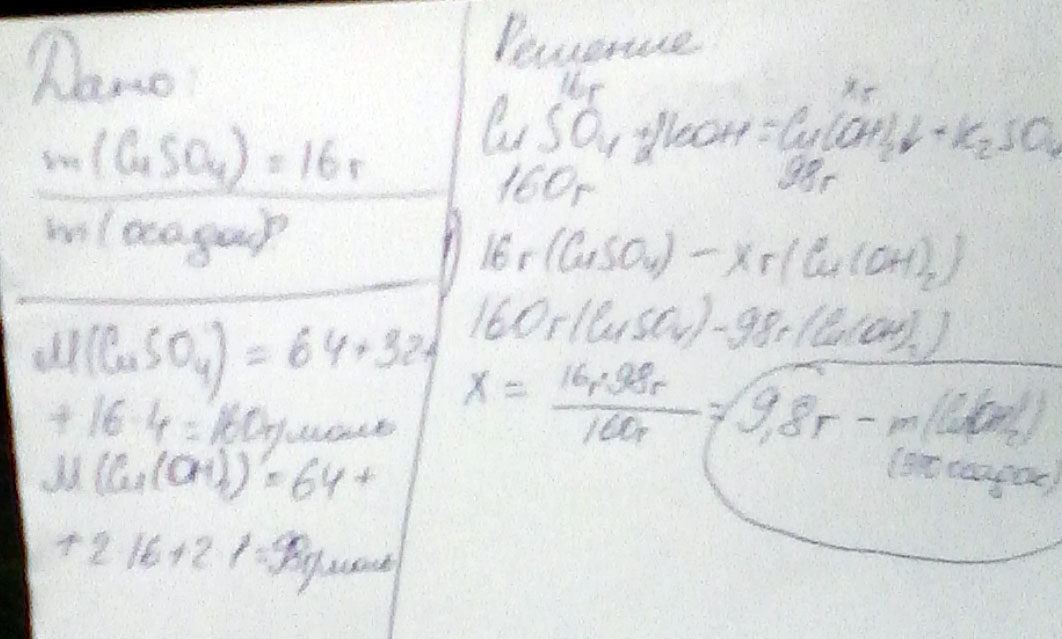 Дано:
m(CuSO4) = 16г
m(осадок)?
M(CuSO4) = 64+32+
+16·4=160г/моль
M(Cu(OH)2) = 64+
+2·16+2·1=98г/моль
Решение
16г xг
CuSO4+2KOH=Cu(OH)2↓+K2SO4
160г 98г
16г(CuSO4) – xг(Cu(OH)2)
160г(CuSO4)–98г(Cu(OH)2)
x = 16г·98г / 160г = 9,8г – m(Cu(OH)2)
(это осадок)